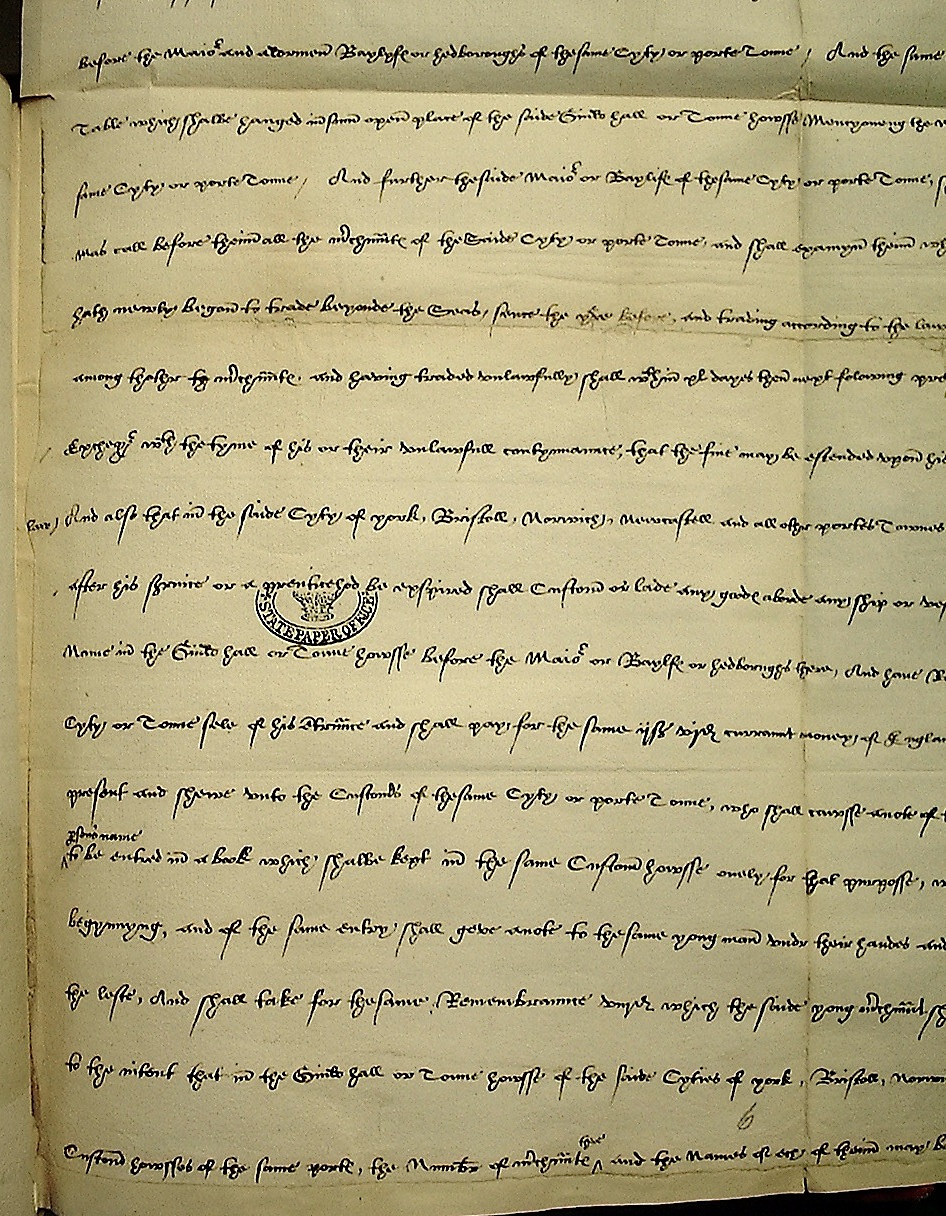 before the Maior and aldermen Baylyfs or hedboroughs of thesame Cyty or porte Towne / And the same
Table which shalbe hanged in sum open place of the saide Guild hall or Towne howsse Mencyoneng the
same Cyty or porte Towne / And further thesaide Maior or Baylife of thesame Cyty or porte Towne,
mas call before theim all the mrchants of the Saide Cyty or porte Towne, and shall examyn theim
hath newly began to trade beyonde the Seas, sence the before, and trading according to the law
among thother mrchants, and having traded unlawfully shall wthin xl dayes then next folowing
Exchequr wth the tyme of his or their unlawfull contynuance, that the fine may be estended upon his
And also that in the saide Cyty of york, Bristoll, Norwich, Newcastell and all othr portes Townes
after his service or a prenticehod be expired shall Custom or lade any goods aborde any ship or
STATE PAPER OFFICE
Name in the Guild hall or Towne howsse before the Maior or Baylfs or hedboroughs there, And have
Cyty or Towne sele of his and shall pay for the same ijs vjd currannt money of Englan
present and shewe unto the Customrs of thesame Cyty or porte Towne, who shall cawsse anote of
name
to be entred in a book which shalbe kept in the same Custom howsse onely for that purposse,
begynnyng, and of the same entry shall geve anote to thesame yong man undr their handes and
the leste, And shall take for thesame Remembraunce viijd which the saide yong mrchant
to the intent that in the Guild hall or Towne howsse of the saide Cyties of york, Bristoll,
6
Custom howsses of the same ports, the Numbr of mrchants and the Names of ech of theim may